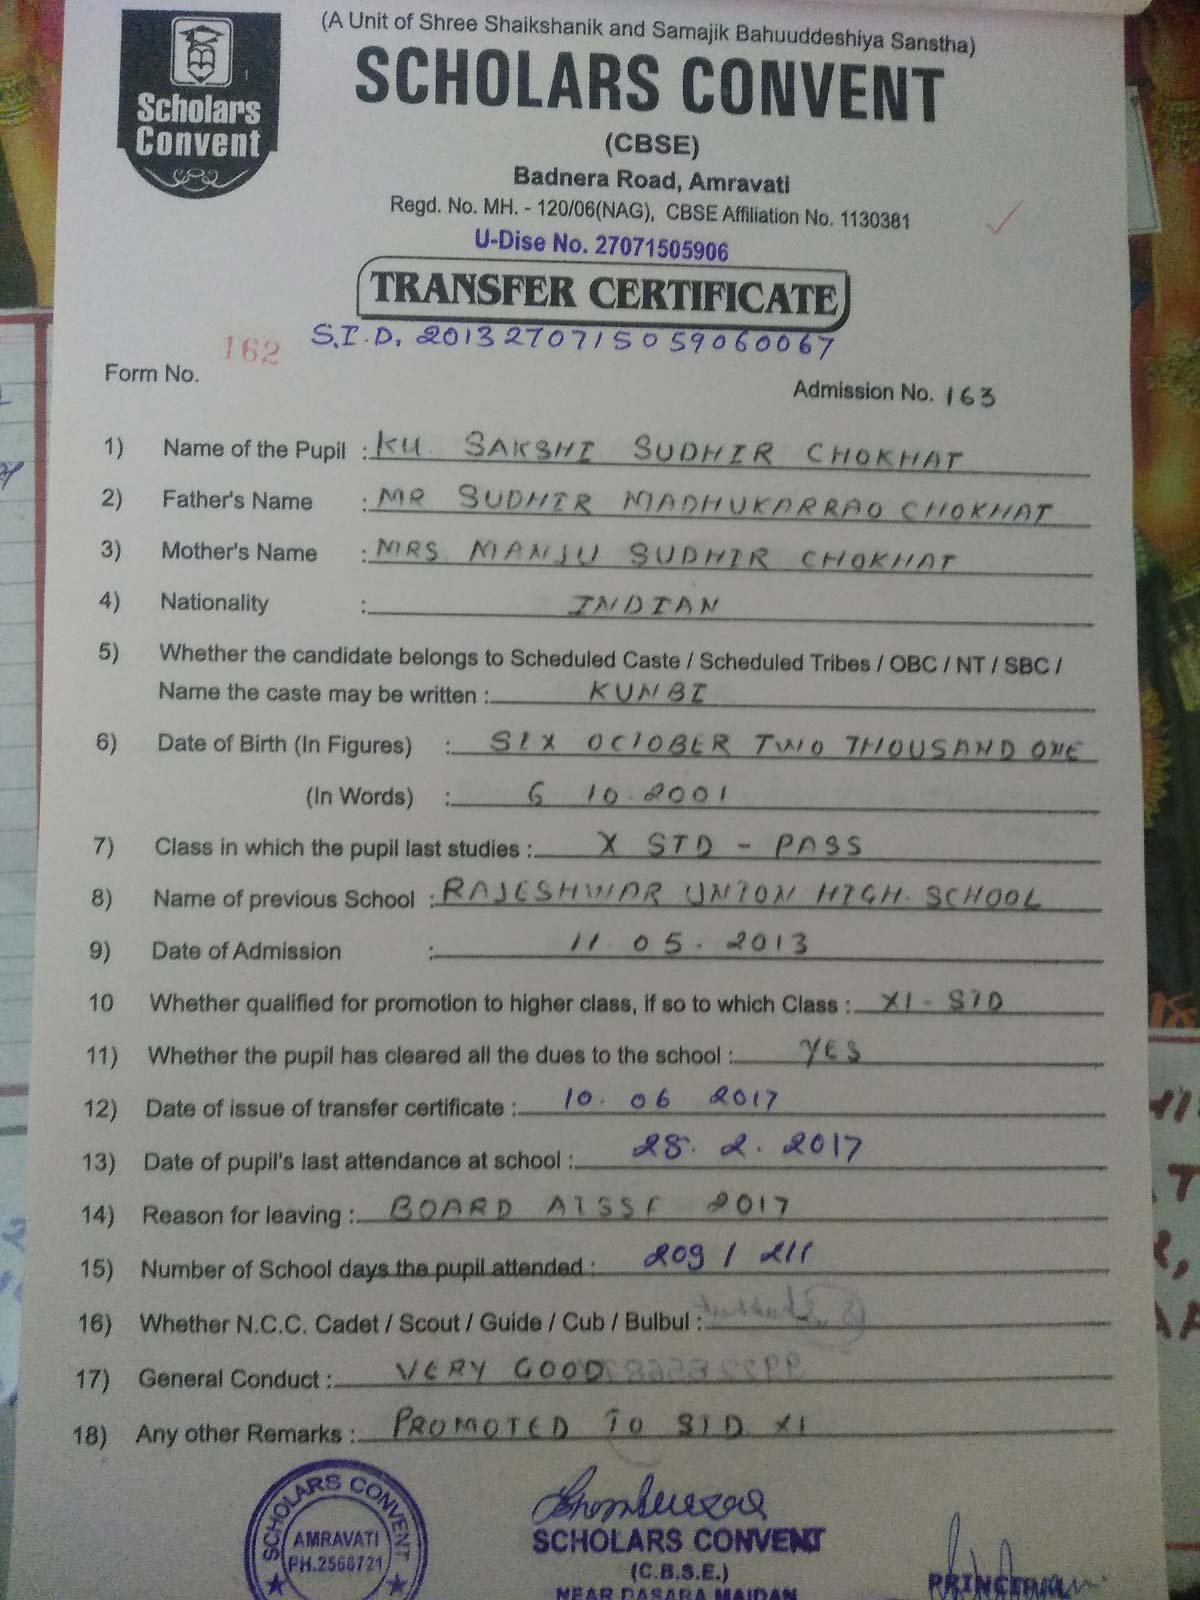 (A Unit of Shree Shaikshanik and Samajik Bahuuddeshiya Sanstha)
Scholars
Convent
SCHOLARS CONVENT
(CBSE)
Badnera Road, Amravati
Regd. No. MH. - 120/06(NAG), CBSE Affiliation No. 1130381
U-Dise No. 27071505906
TRANSFER CERTIFICATE
S.I.D. 2013270715059060067
Form No. 162
Admission No. 163
1) Name of the Pupil : KU. SAKSHI SUDHIR CHOKHAT
2) Father's Name : MR SUDHIR MADHUKARRAO CHOKHAT
3) Mother's Name : MRS MANJU SUDHIR CHOKHAT
4) Nationality : INDIAN
5) Whether the candidate belongs to Scheduled Caste / Scheduled Tribes / OBC / NT / SBC /
Name the caste may be written : KUNBI
6) Date of Birth (In Figures) : SIX OCTOBER TWO THOUSAND ONE
(In Words) : 6 10.2001
7) Class in which the pupil last studies : X STD - PASS
8) Name of previous School : RAJESHWAR UNION HIGH SCHOOL
9) Date of Admission : 11 05. 2013
10 Whether qualified for promotion to higher class, if so to which Class : XI - STD
11) Whether the pupil has cleared all the dues to the school : YES
12) Date of issue of transfer certificate : 10. 06 2017
13) Date of pupil's last attendance at school : 28. 2. 2017
14) Reason for leaving : BOARD AISSE 2017
15) Number of School days the pupil attended : 209 / 211
16) Whether N.C.C. Cadet / Scout / Guide / Cub / Bulbul :
17) General Conduct : VERY GOOD
18) Any other Remarks : PROMOTED TO STD XI
SCHOLARS CONVENT
AMRAVATI
PH.2568721
SCHOLARS CONVENT
(C.B.S.E.)
NEAR DASARA MAIDAN
PRINCIPAL